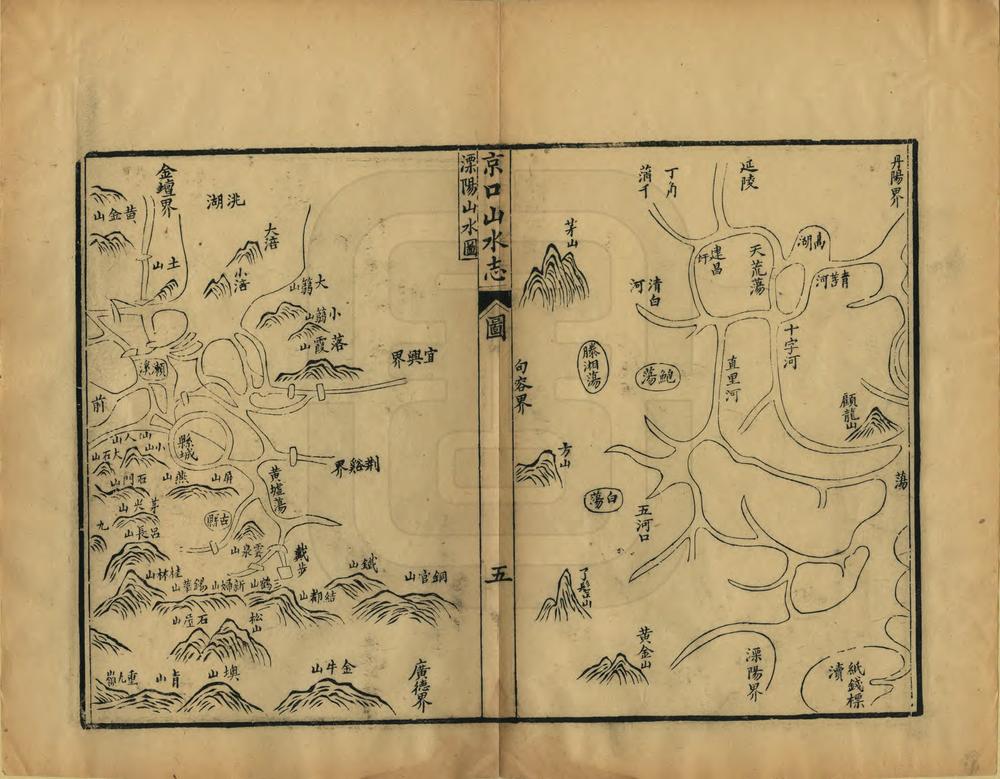 丹陽界
延陵
丁角
高湖
青莒河
天荒蕩
建昌圩
清白河
茅山
十字河
直里河
滕湘蕩
鮑蕩
顧龍山
蕩
句容界
方山
白蕩
五河口
丫髻山
黃金山
溧陽界
紙錢標瀆
京口山水志
圖
五
溧陽山水圖
洮湖
金壇界
黃金山
大涪
小涪
土山
大翳山
小翳山
落霞山
宜興界
瀨溪
前
縣城
荊谿界
小山
大石山
屏山
燕山
石門山
黃墟蕩
茅尖山
古縣
呂長山
九
雲泉山
戴步
桂林山
鐵山
銅官山
三鶴山
錫華山
結都山
石屋山
松山
金牛山
墺山
肯山
廣德界